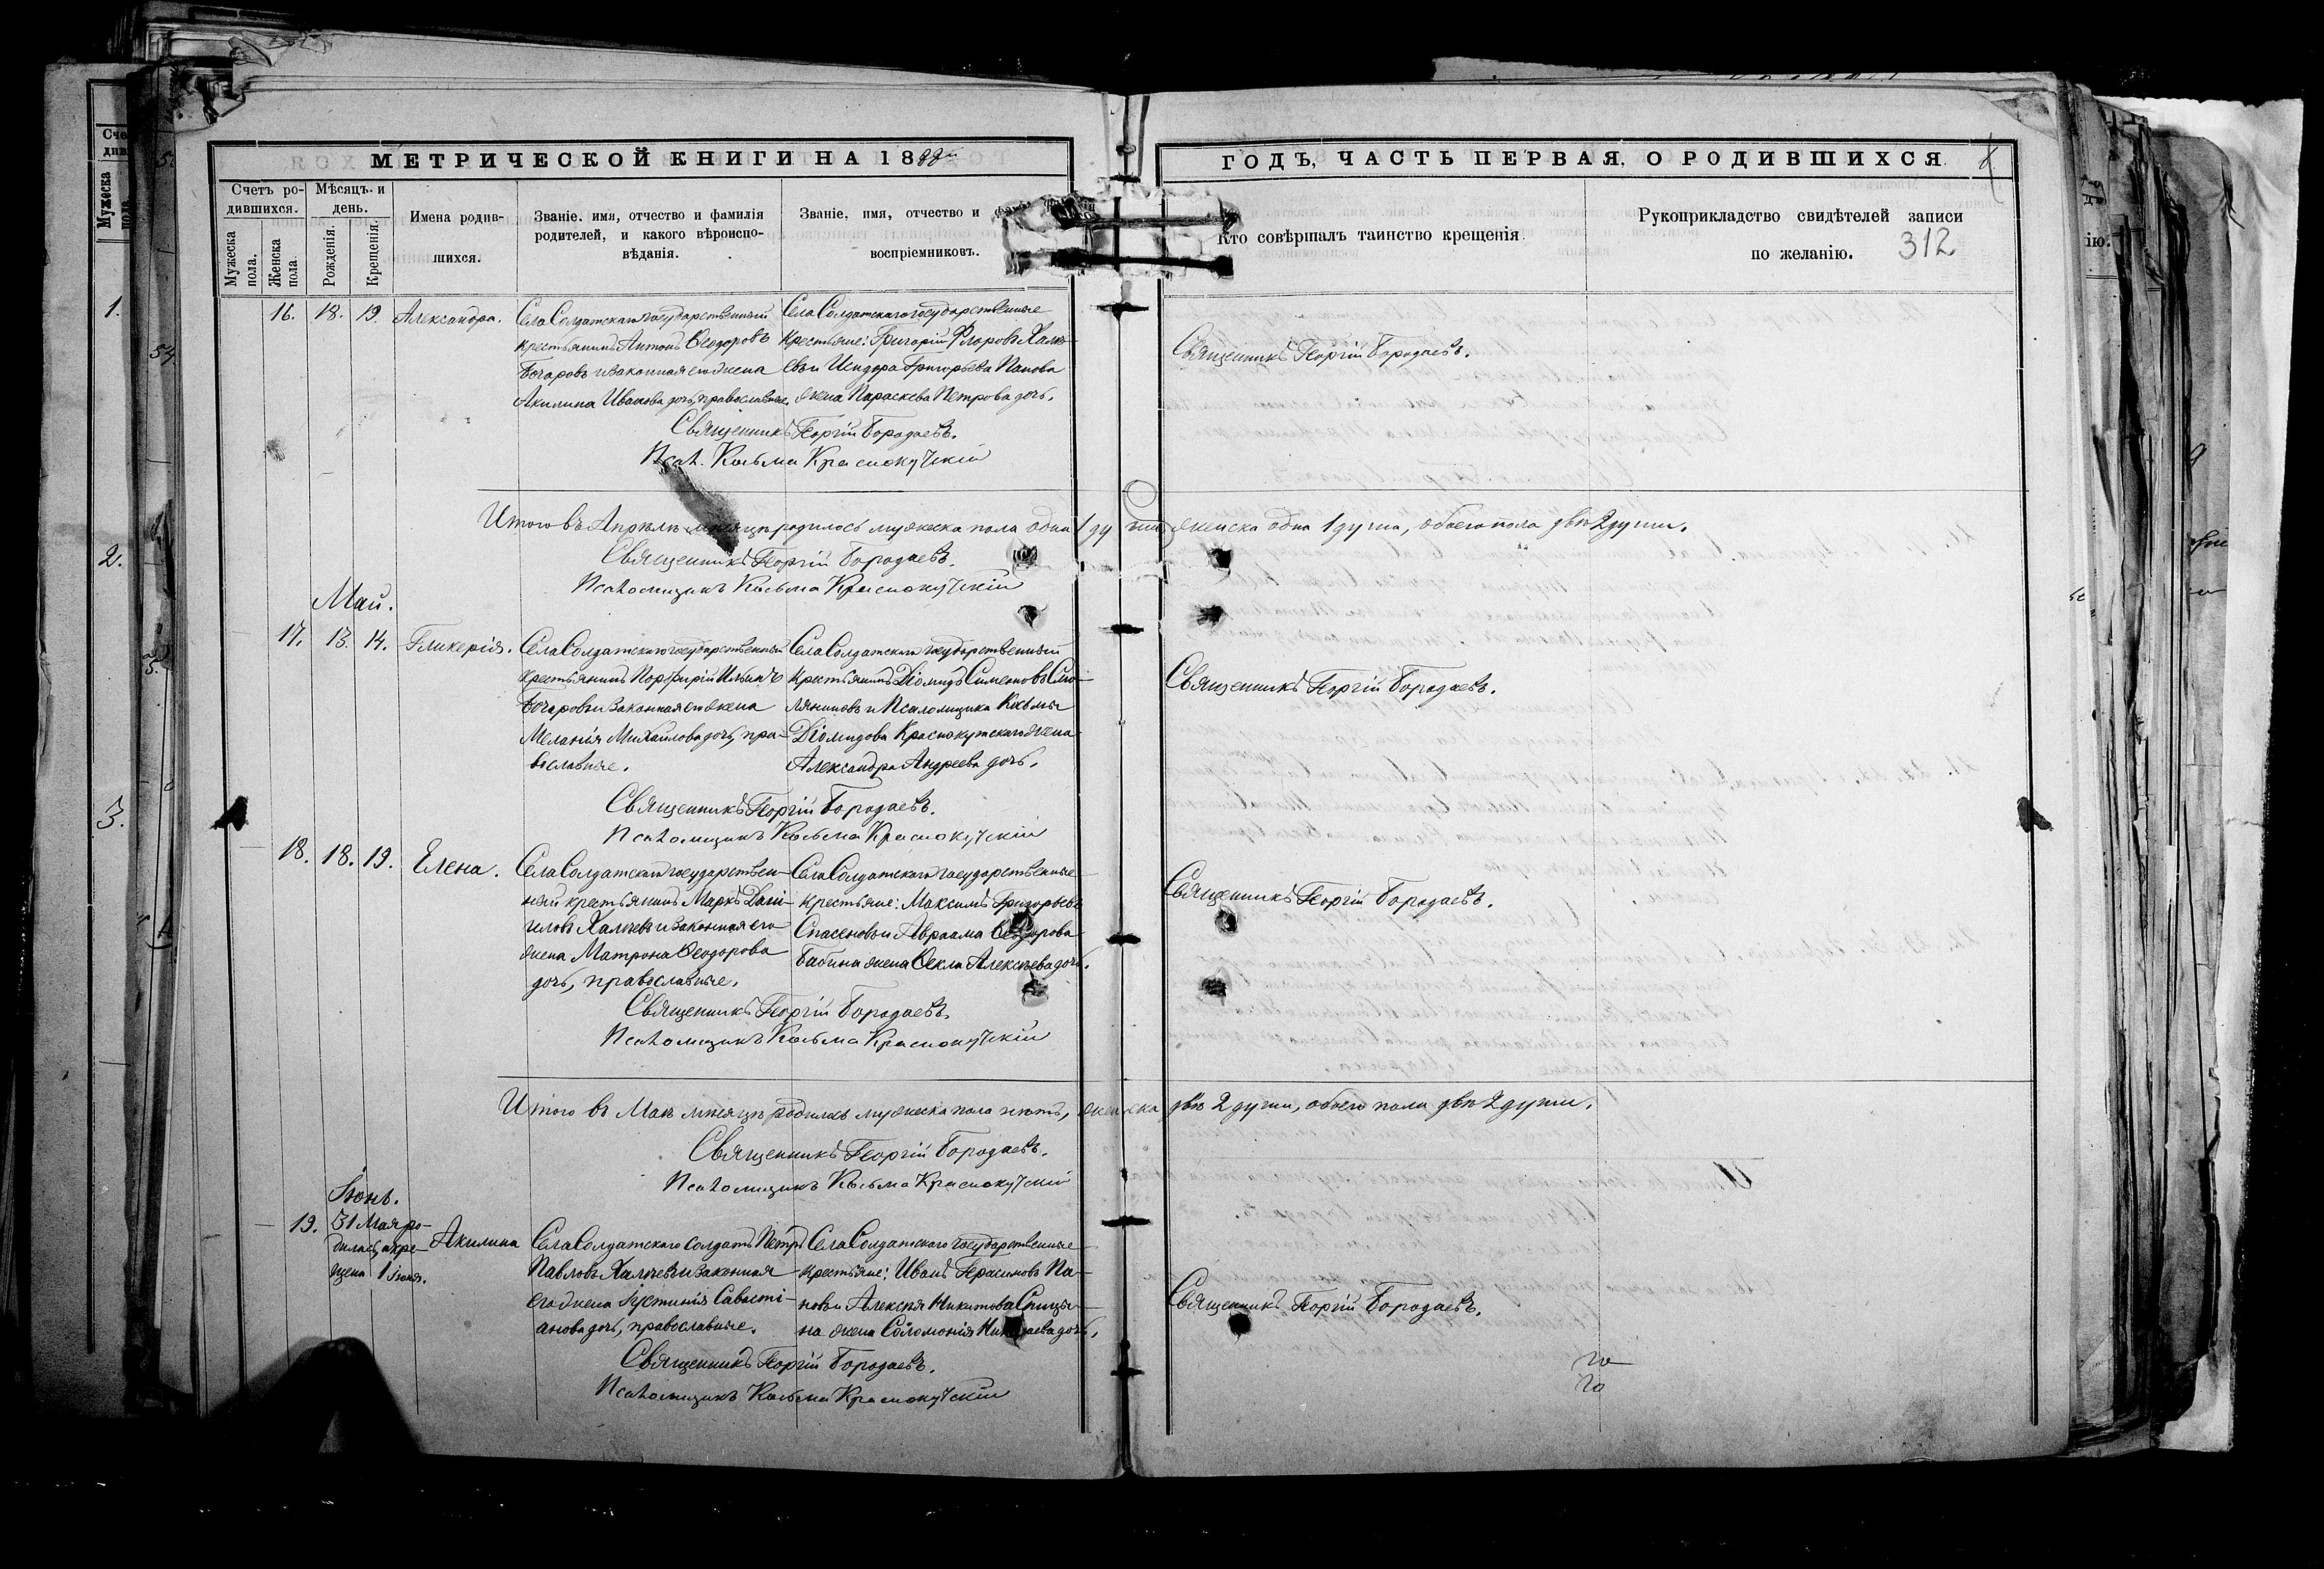 МЕТРИЧЕСКОЙ КНИГИ НА 1888
ГОДЪ, ЧАСТЬ ПЕРВАЯ, О РОДИВШИХСЯ
Счетъ ро-
дившихся.
Мѣсяцъ и
день.
Мужеска
пола.
Женска
пола.
Рожденія.
Крещенія.
Имена родив-
шихся.
Званіе, имя, отчество и фамилія
родителей, и какого вѣроиспо-
вѣданія.
Званіе, имя, отчество и
воспріемниковъ.
Кто совѣршалъ таинство крещенія
Рукоприкладство свидѣтелей записи
по желанію.
312
16. 18. 19. Александра.
Села Солдатскаго государственный
крестьянинъ Антонъ Ѳеодоровъ
Бочаровъ и законная его жена
Акилина Иванова дочь, православные.
Села Солдатскаго государственные
крестьяне: Григорій Флоровъ Халѣ-
евъ и Исидора Григорьева Панова
жена Параскева Петрова дочь.
Священникъ Георгій Бородаевъ.
Священникъ Георгій Бородаевъ.
Псал. Козьма Краснокутскій
Итого въ Апрѣлѣ мѣсяцѣ родилось мужеска пола одна 1 душа, женска одна 1 душа, обоего пола двѣ 2 души.
Священникъ Георгій Бородаевъ.
Псаломщикъ Козьма Краснокутскій
Май.
17. 13. 14. Гликерія.
Села Солдатскаго государственный
крестьянинъ Порфирій Ильинъ
Бочаровъ и законная его жена
Меланія Михайлова дочь, пра-
вославные.
Села Солдатскаго государственный
крестьянинъ Діомидъ Симеоновъ
и Псаломщика Козьмы
Діомидова Краснокутскаго жена
Александра Андреева дочь.
Священникъ Георгій Бородаевъ.
Священникъ Георгій Бородаевъ.
Псаломщикъ Козьма Краснокутскій
18. 18. 19. Елена.
Села Солдатскаго государствен-
ный крестьянинъ Маркъ Дані-
иловъ Халѣевъ и законная его
жена Матрона Ѳеодорова
дочь, православные.
Села Солдатскаго государственные
крестьяне: Максимъ Григорьевъ
Спасеновъ и Авраама Ѳеодорова
Бабина жена Ѳекла Алексѣева дочь.
Священникъ Георгій Бородаевъ.
Священникъ Георгій Бородаевъ.
Псаломщикъ Козьма Краснокутскій
Итого въ Маѣ мѣсяцѣ родилось мужеска пола нѣтъ, женска двѣ 2 души, обоего пола двѣ 2 души.
Священникъ Георгій Бородаевъ.
Псаломщикъ Козьма Краснокутскій
Іюнь.
19. 31 Мая ро-
дилась, а кре-
щена 1 Іюня.
Акилина
Села Солдатскаго солдатъ Петръ
Павловъ Халѣевъ и законная
его жена Іустинія Савасті-
анова дочь, православные.
Села Солдатскаго государственные
крестьяне: Иванъ Герасимовъ Па-
новъ и Алексѣя Никитова Спицы-
на жена Соломонія Николаева дочь.
Священникъ Георгій Бородаевъ.
Священникъ Георгій Бородаевъ.
Псаломщикъ Козьма Краснокутскій